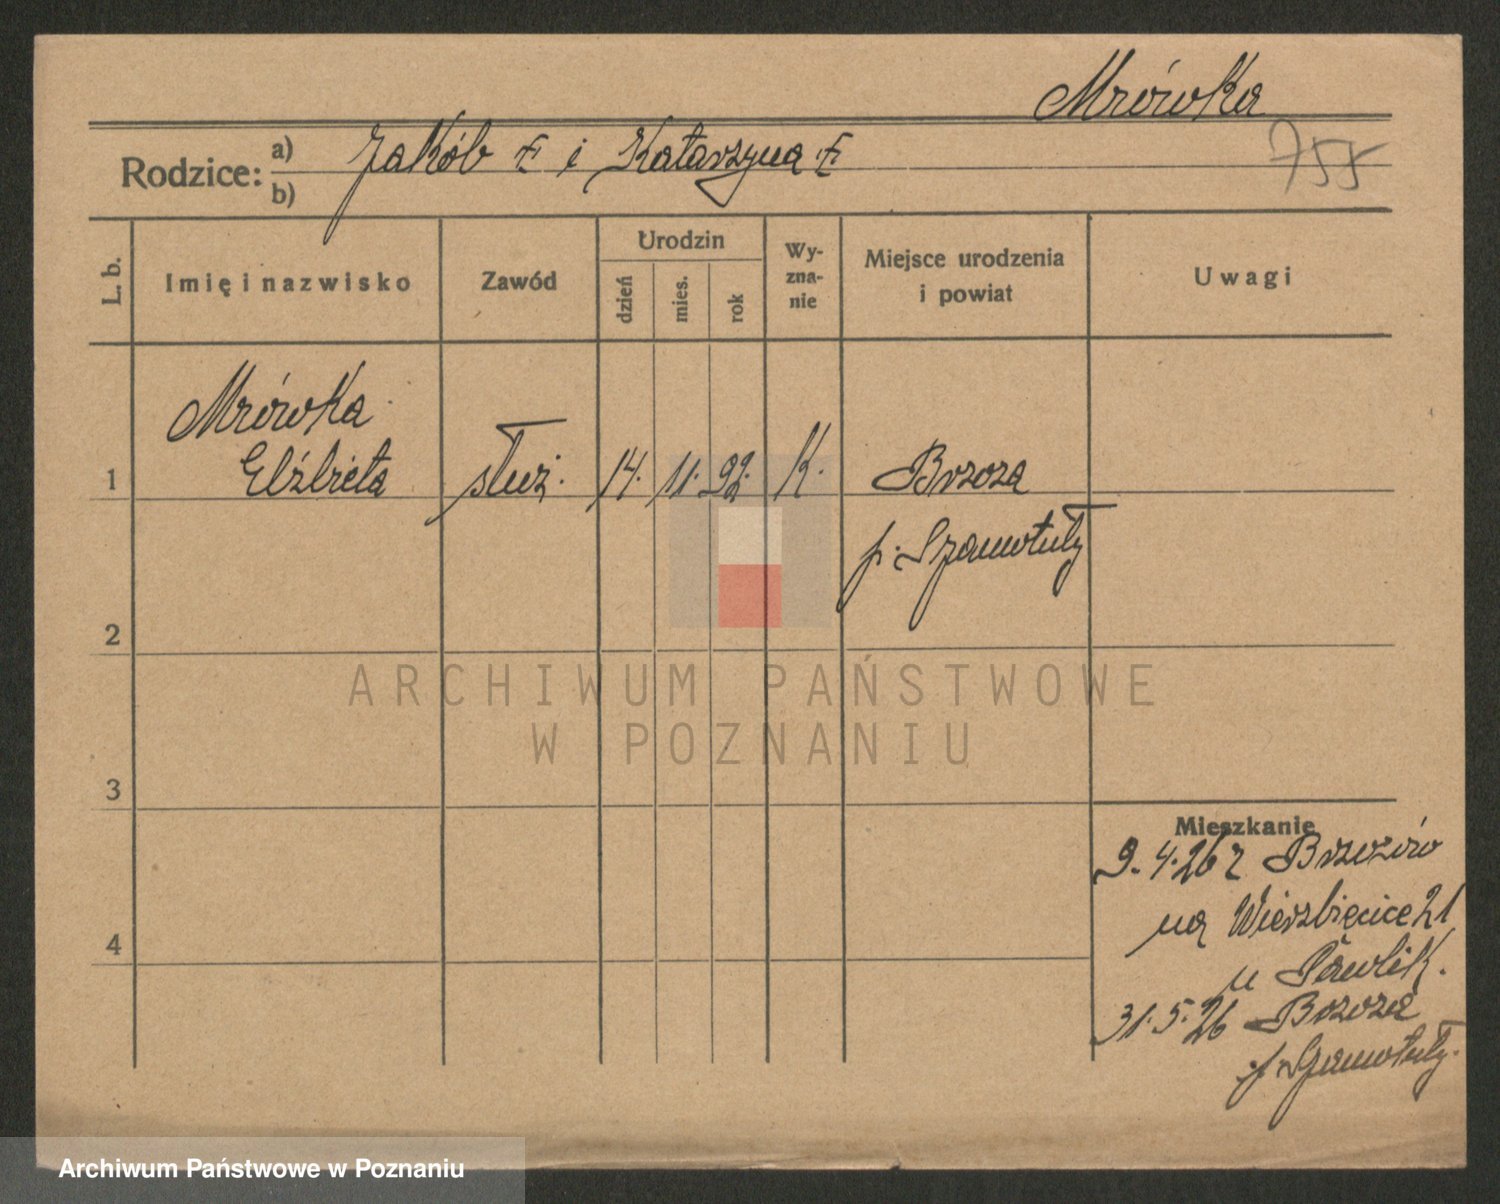 Mrówka
Rodzice: a) Jakób i Katarzyna
b)
755
L. b.
Imię i nazwisko
Zawód
Urodzin
dzień
mies.
rok
Wy-
zna-
nie
Miejsce urodzenia
i powiat
Uwagi
Mrówka
1 Elżbieta służ. 14. 11. 92. K. Brzoza
p. Szamotuły
2
3
4
Mieszkanie
9.4.26 z
na Wierzbięcice 21
u Pawlik.
31.5.26 Brzoza
p. Szamotuły.
ARCHIWUM PAŃSTWOWE
W POZNANIU
Archiwum Państwowe w Poznaniu